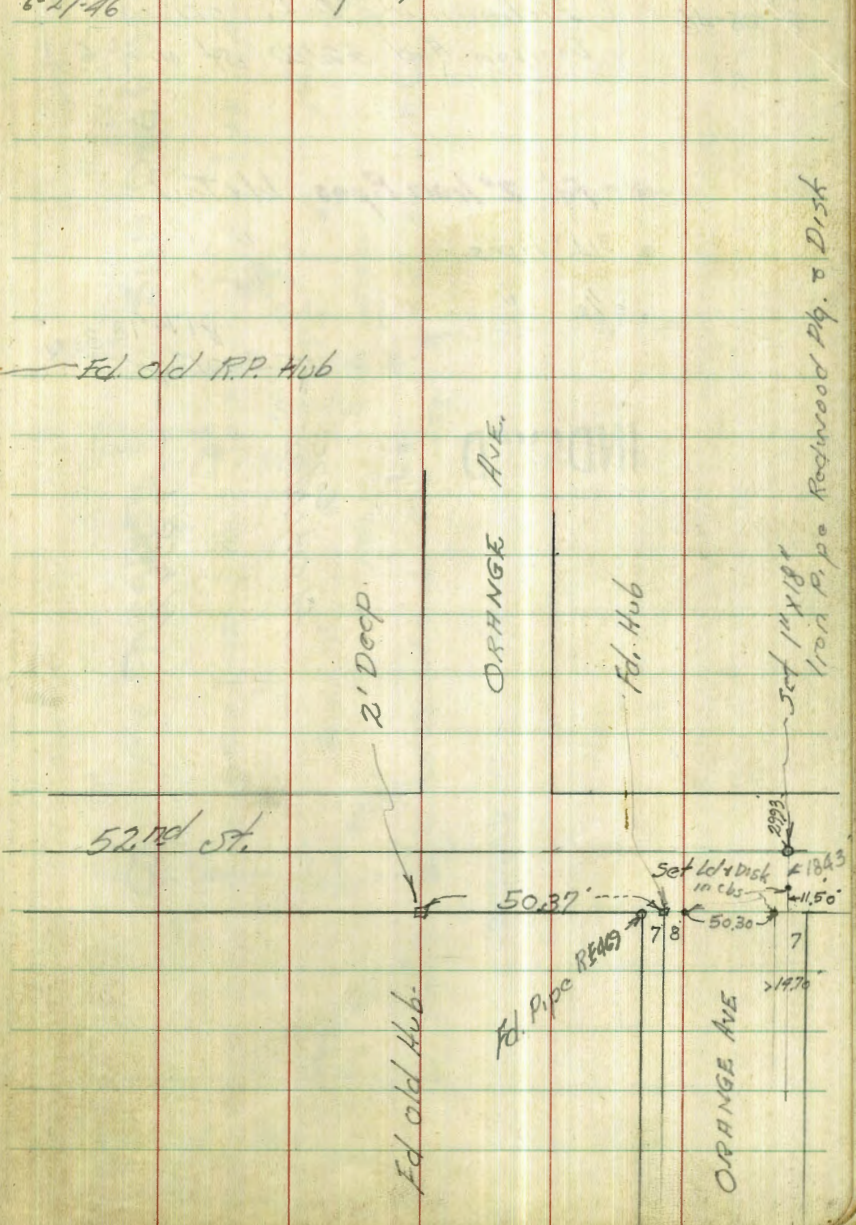 6-21-46
Fd. old R.P. Hub
ORANGE AVE.
2' Deep.
Fd. Hub
Set 1" x 18"
Iron Pipe Redwood Plg. & Disk
52nd St.
29.93'
Set Ld & Disk
in cbs
18.43'
11.50'
50.37'
50.30
7 8
7
14.70'
Fd. Pipe RE469
Fd old Hub.
ORANGE AVE